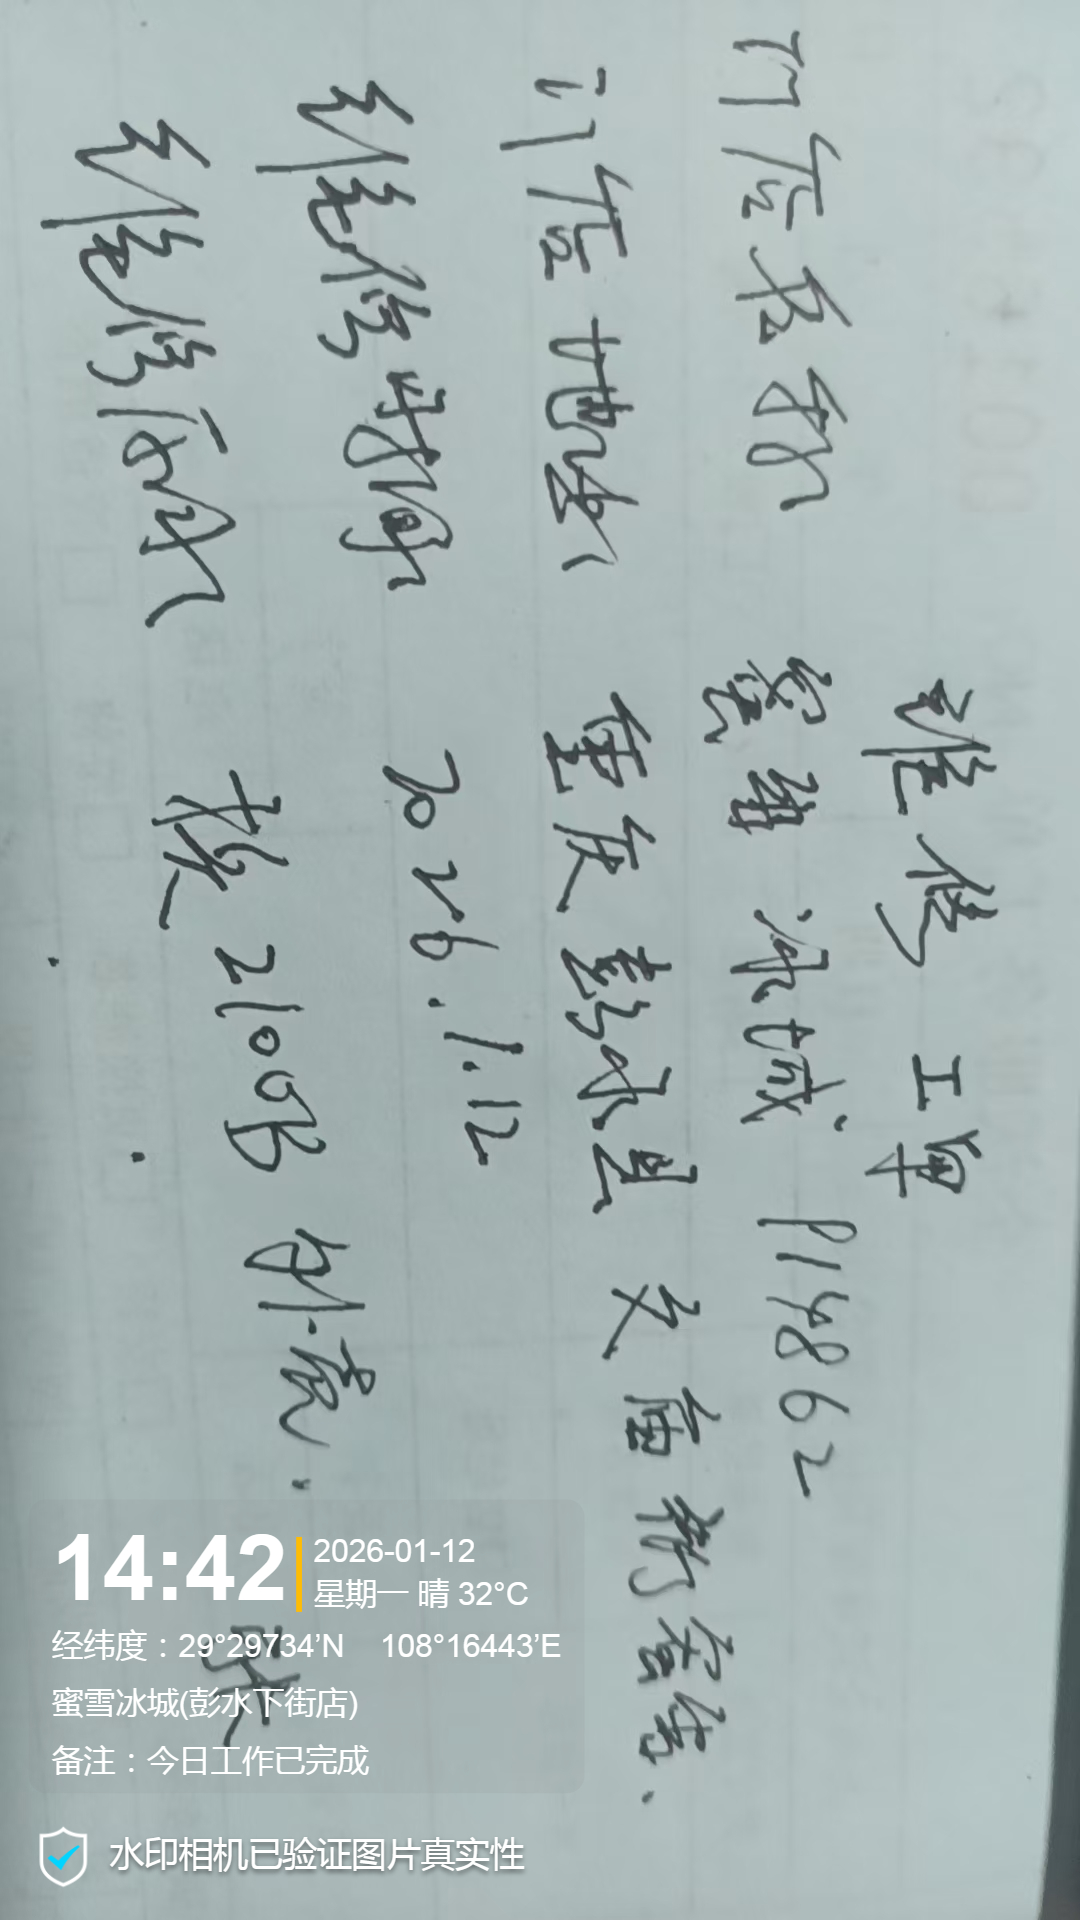 维修工单
门店名称 蜜雪冰城 P14862
门店地址 重庆彭水县文庙街
维修时间 2026.1.12
维修内容 换2100B
14:42
2026-01-12
星期一 晴 32°C
经纬度：29°29734’N 108°16443’E
蜜雪冰城(彭水下街店)
备注：今日工作已完成
水印相机已验证图片真实性